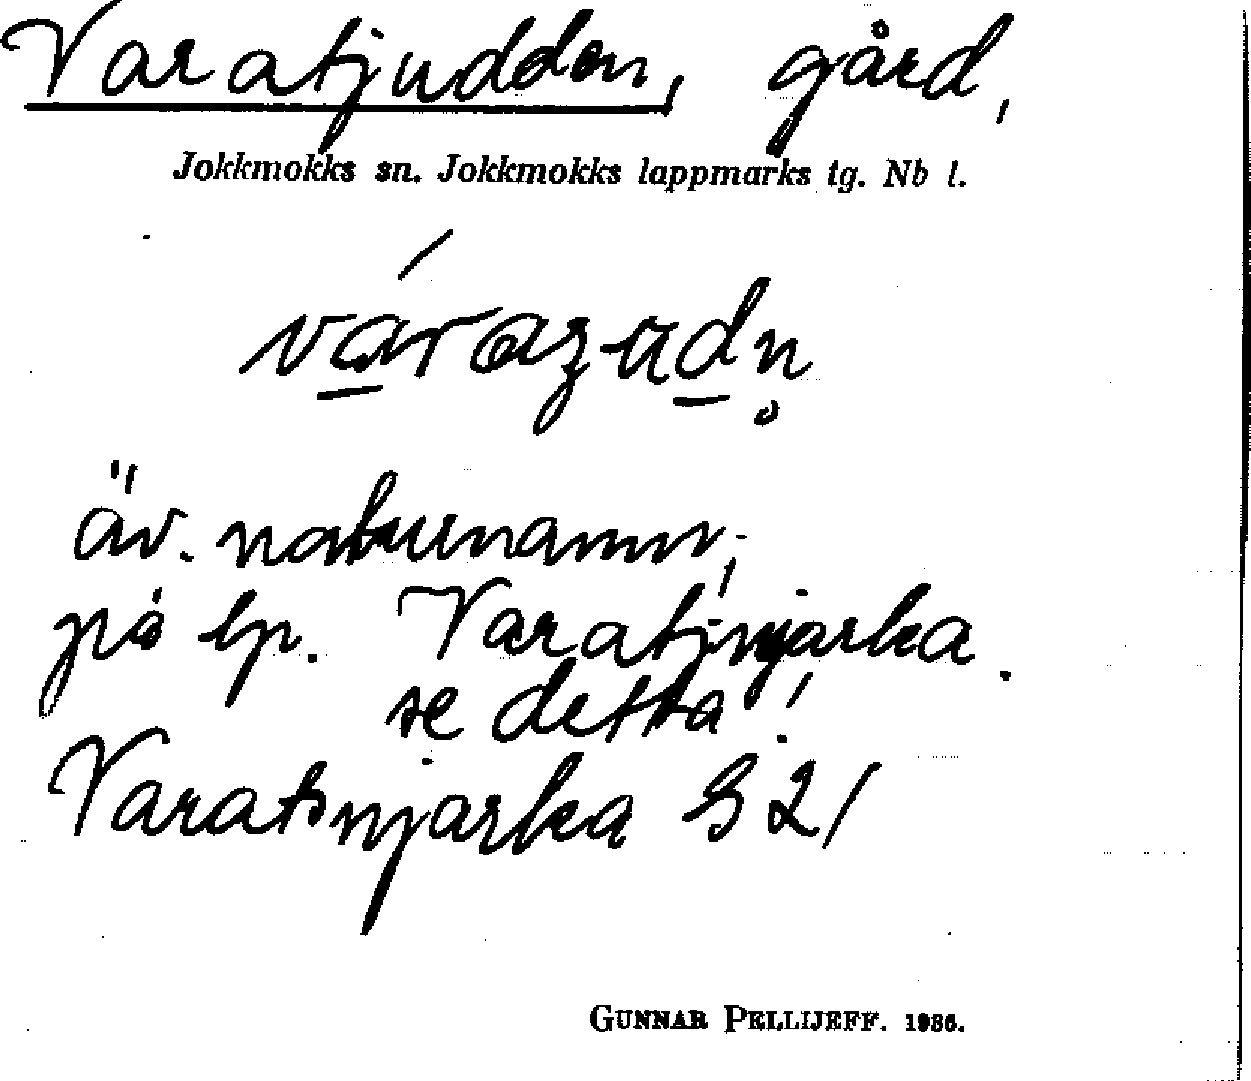 Varatjudden, gård,
Jokkmokks sn. Jokkmokks lappmarks tg. Nb l.
várazudn̥
äv. naturnamn;
på lp. Varatjnjarka.
se detta!
Varatsnjarka S 21
GUNNAR PELLIJEFF. 1936.